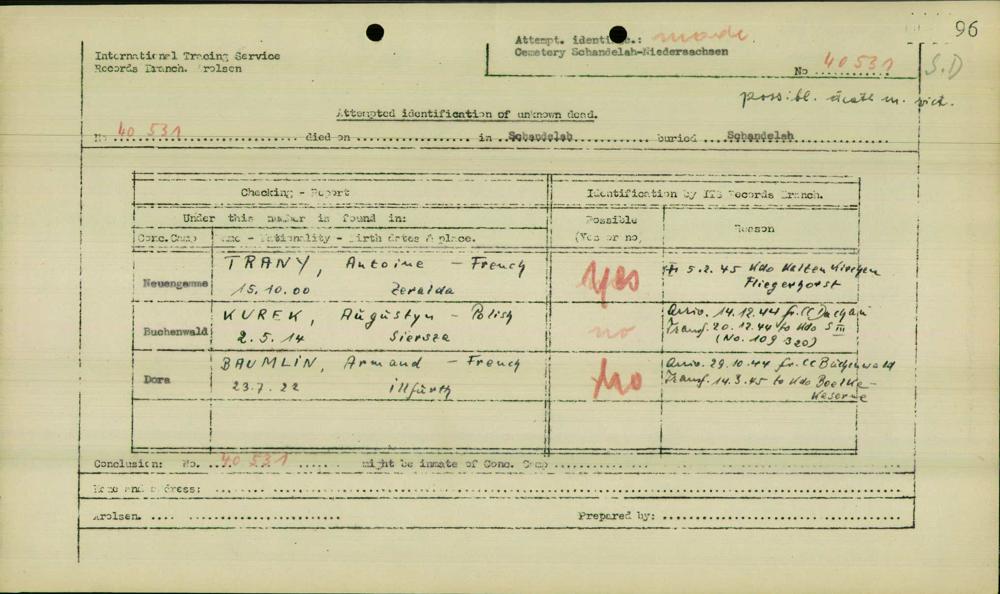 96
International Tracing Service
Records Branch. Arolsen
Attempt. identific.: made
Cemetery Schandelah-Niedersachsen
No ............ 40 531
S.D
possibl. death m. vict.
Attempted identification of unknown dead.
No 40 531 ........ died on ........ in .. Schandelah ........ buried ... Schandelah ........
Checking - Report
Identification by ITS Records Branch.
Under this number is found in:
Possible
(Yes or no)
Reason
Conc.Camp
Name - Nationality - Birth dates & place.
Neuengamme
TRANY, Antoine - French
15.10.00 Zeralda
yes
5.2.45 Kdo Kaltenkirchen
Fliegerhorst
Buchenwald
KUREK, Augustyn - Polish
2.5.14 Siersza
no
Arriv. 14.12.44 fr. CC Dachau
Transf. 20.12.44 to Kdo S III
(No. 109 320)
Dora
BAUMLIN, Armand - French
23.7.22 illfurth
No
Arriv. 29.10.44 fr. CC Buchenwald
Transf. 14.3.45 to Kdo Boelke-
Kaserne
Conclusion: No. .. 40 531 ...... might be inmate of Conc. Camp ........
Name and address: ........
Arolsen. ........
Prepared by: ........